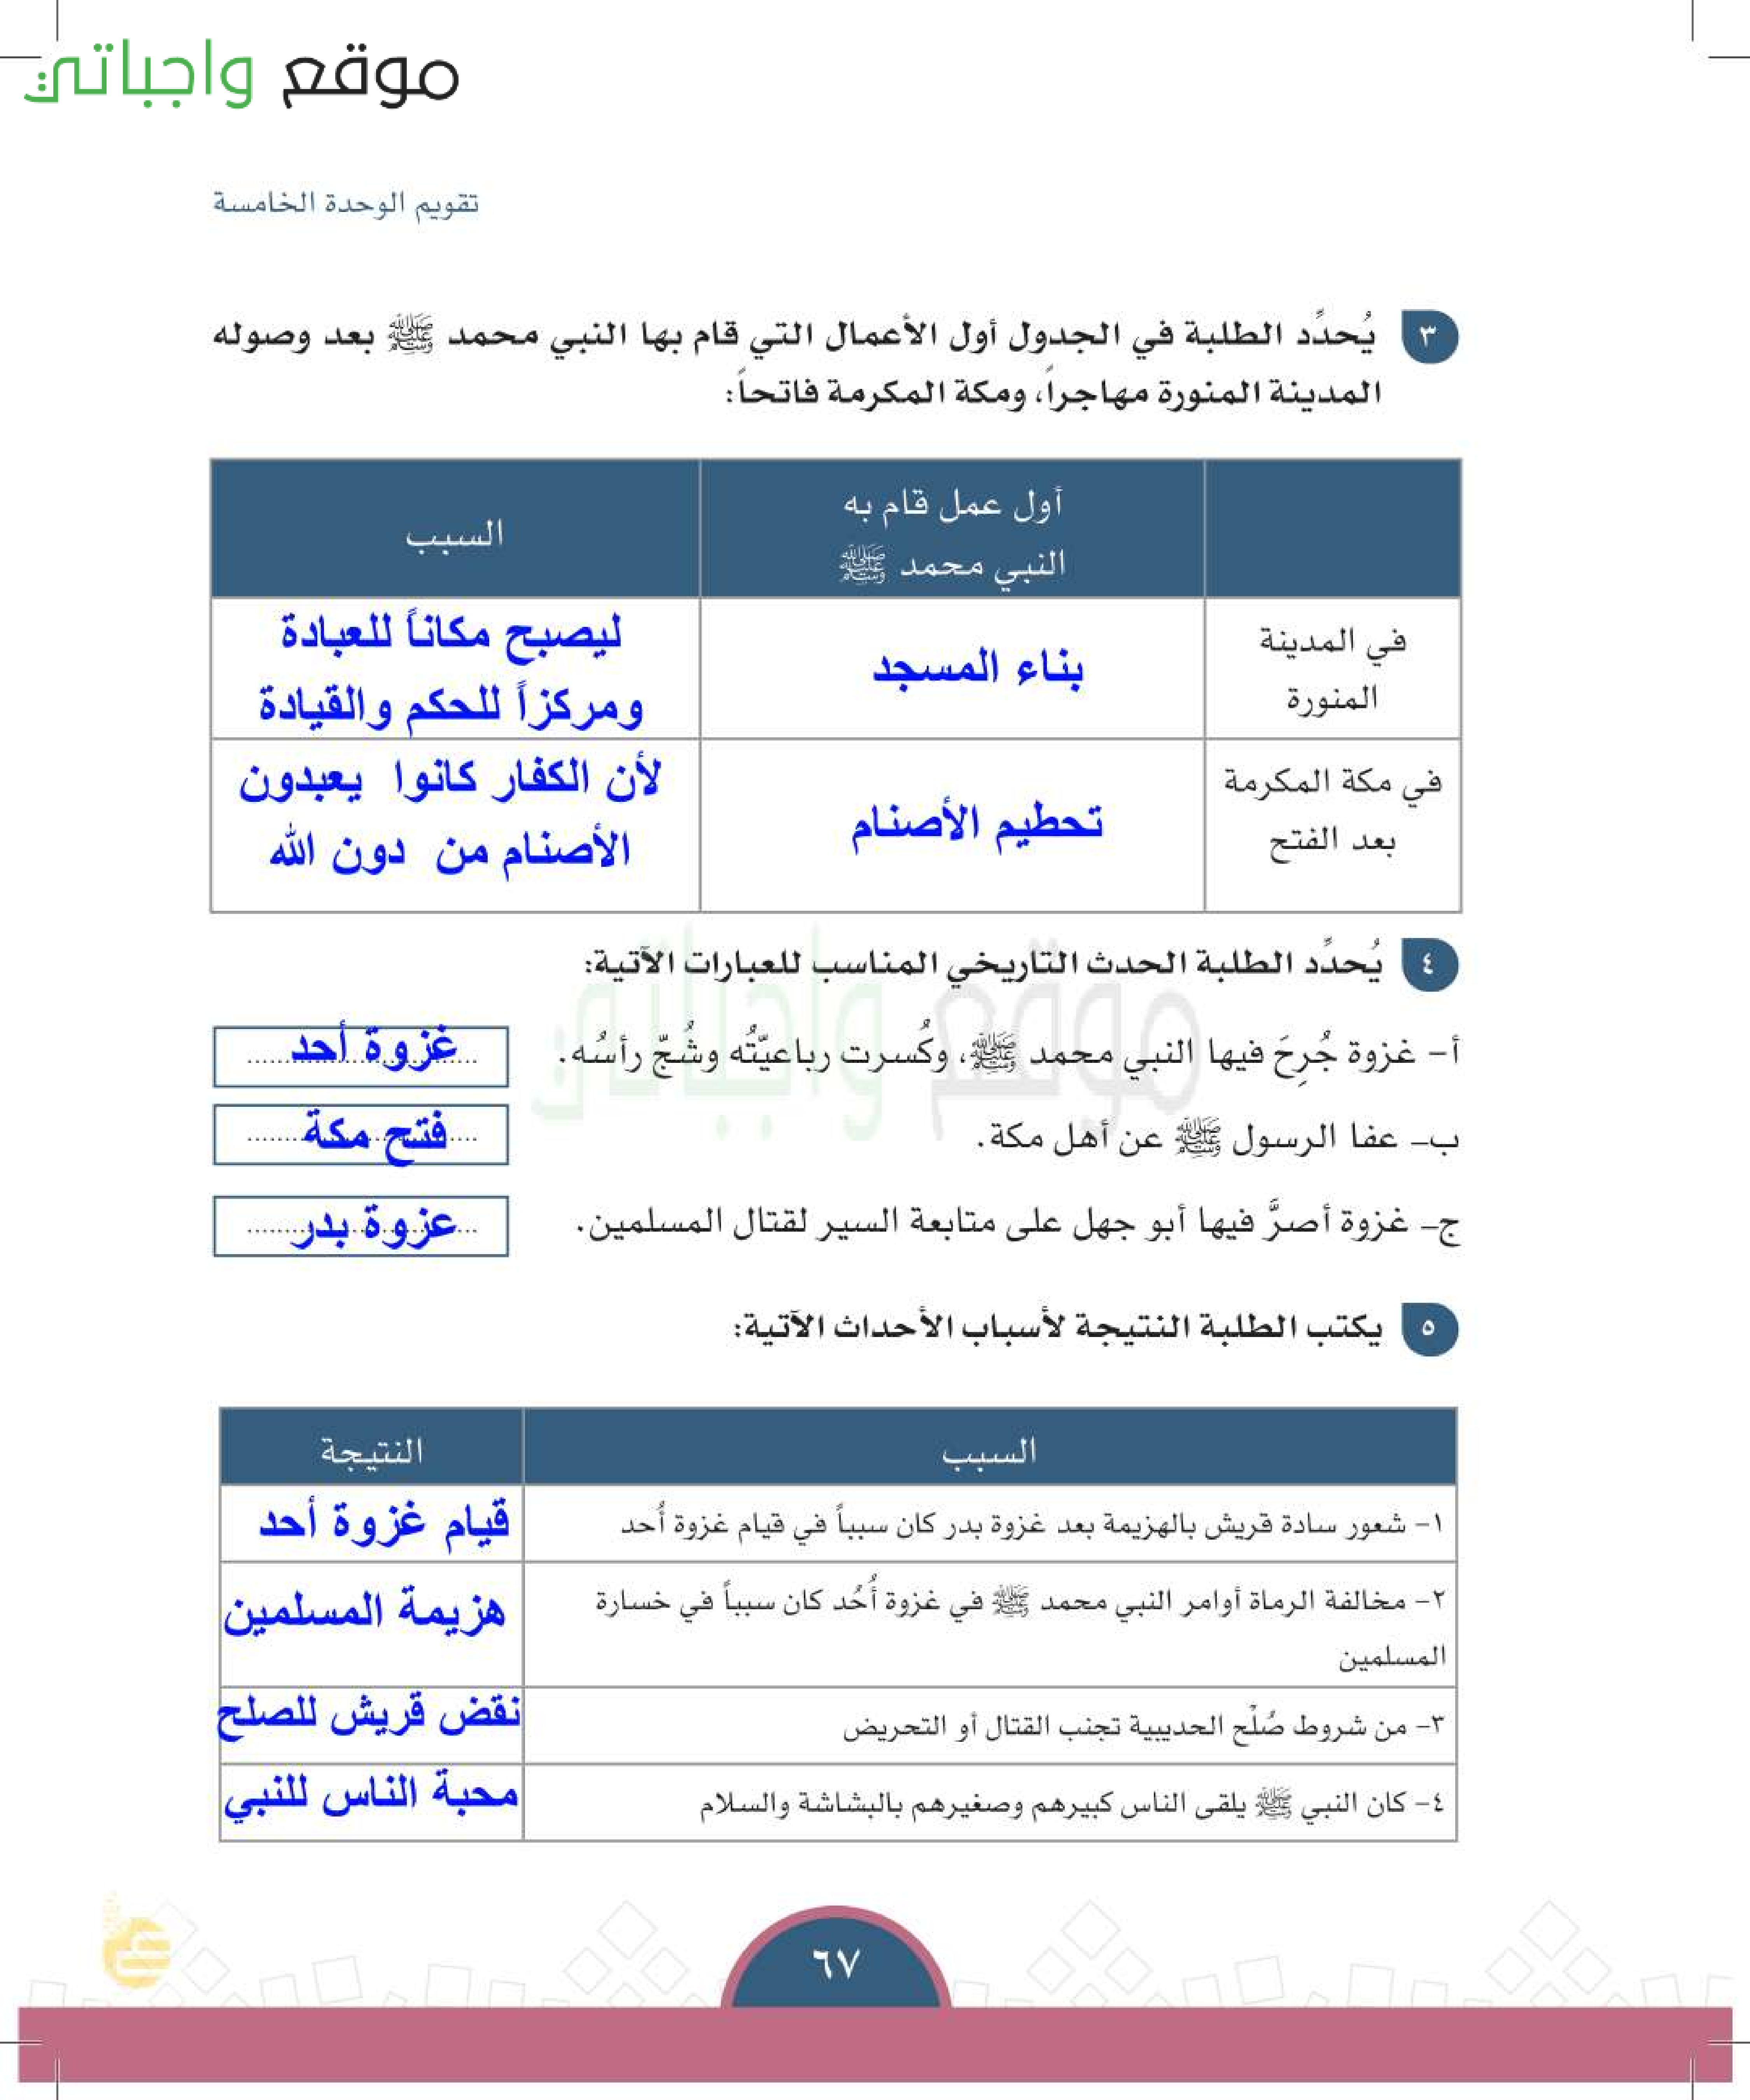 موقع واجباتي
تقويم الوحدة الخامسة
٣ يُحدِّد الطلبة في الجدول أول الأعمال التي قام بها النبي محمد ﷺ بعد وصوله
المدينة المنورة مهاجراً، ومكة المكرمة فاتحاً:
أول عمل قام به
النبي محمد ﷺ
السبب
في المدينة
المنورة
بناء المسجد
ليصبح مكاناً للعبادة
ومركزاً للحكم والقيادة
في مكة المكرمة
بعد الفتح
تحطيم الأصنام
لأن الكفار كانوا يعبدون
الأصنام من دون الله
٤ يُحدِّد الطلبة الحدث التاريخي المناسب للعبارات الآتية:
أ- غزوة جُرِحَ فيها النبي محمد ﷺ، وكُسرت رباعيّتُه وشُجّ رأسُه. غزوة أحد
ب- عفا الرسول ﷺ عن أهل مكة. فتح مكة
ج- غزوة أصرَّ فيها أبو جهل على متابعة السير لقتال المسلمين. عزوة بدر
٥ يكتب الطلبة النتيجة لأسباب الأحداث الآتية:
السبب النتيجة
١- شعور سادة قريش بالهزيمة بعد غزوة بدر كان سبباً في قيام غزوة أُحد قيام غزوة أحد
٢- مخالفة الرماة أوامر النبي محمد ﷺ في غزوة أُحُد كان سبباً في خسارة
المسلمين
هزيمة المسلمين
٣- من شروط صُلْح الحديبية تجنب القتال أو التحريض نقض قريش للصلح
٤- كان النبي ﷺ يلقى الناس كبيرهم وصغيرهم بالبشاشة والسلام محبة الناس للنبي
٦٧
موقع واجباتي